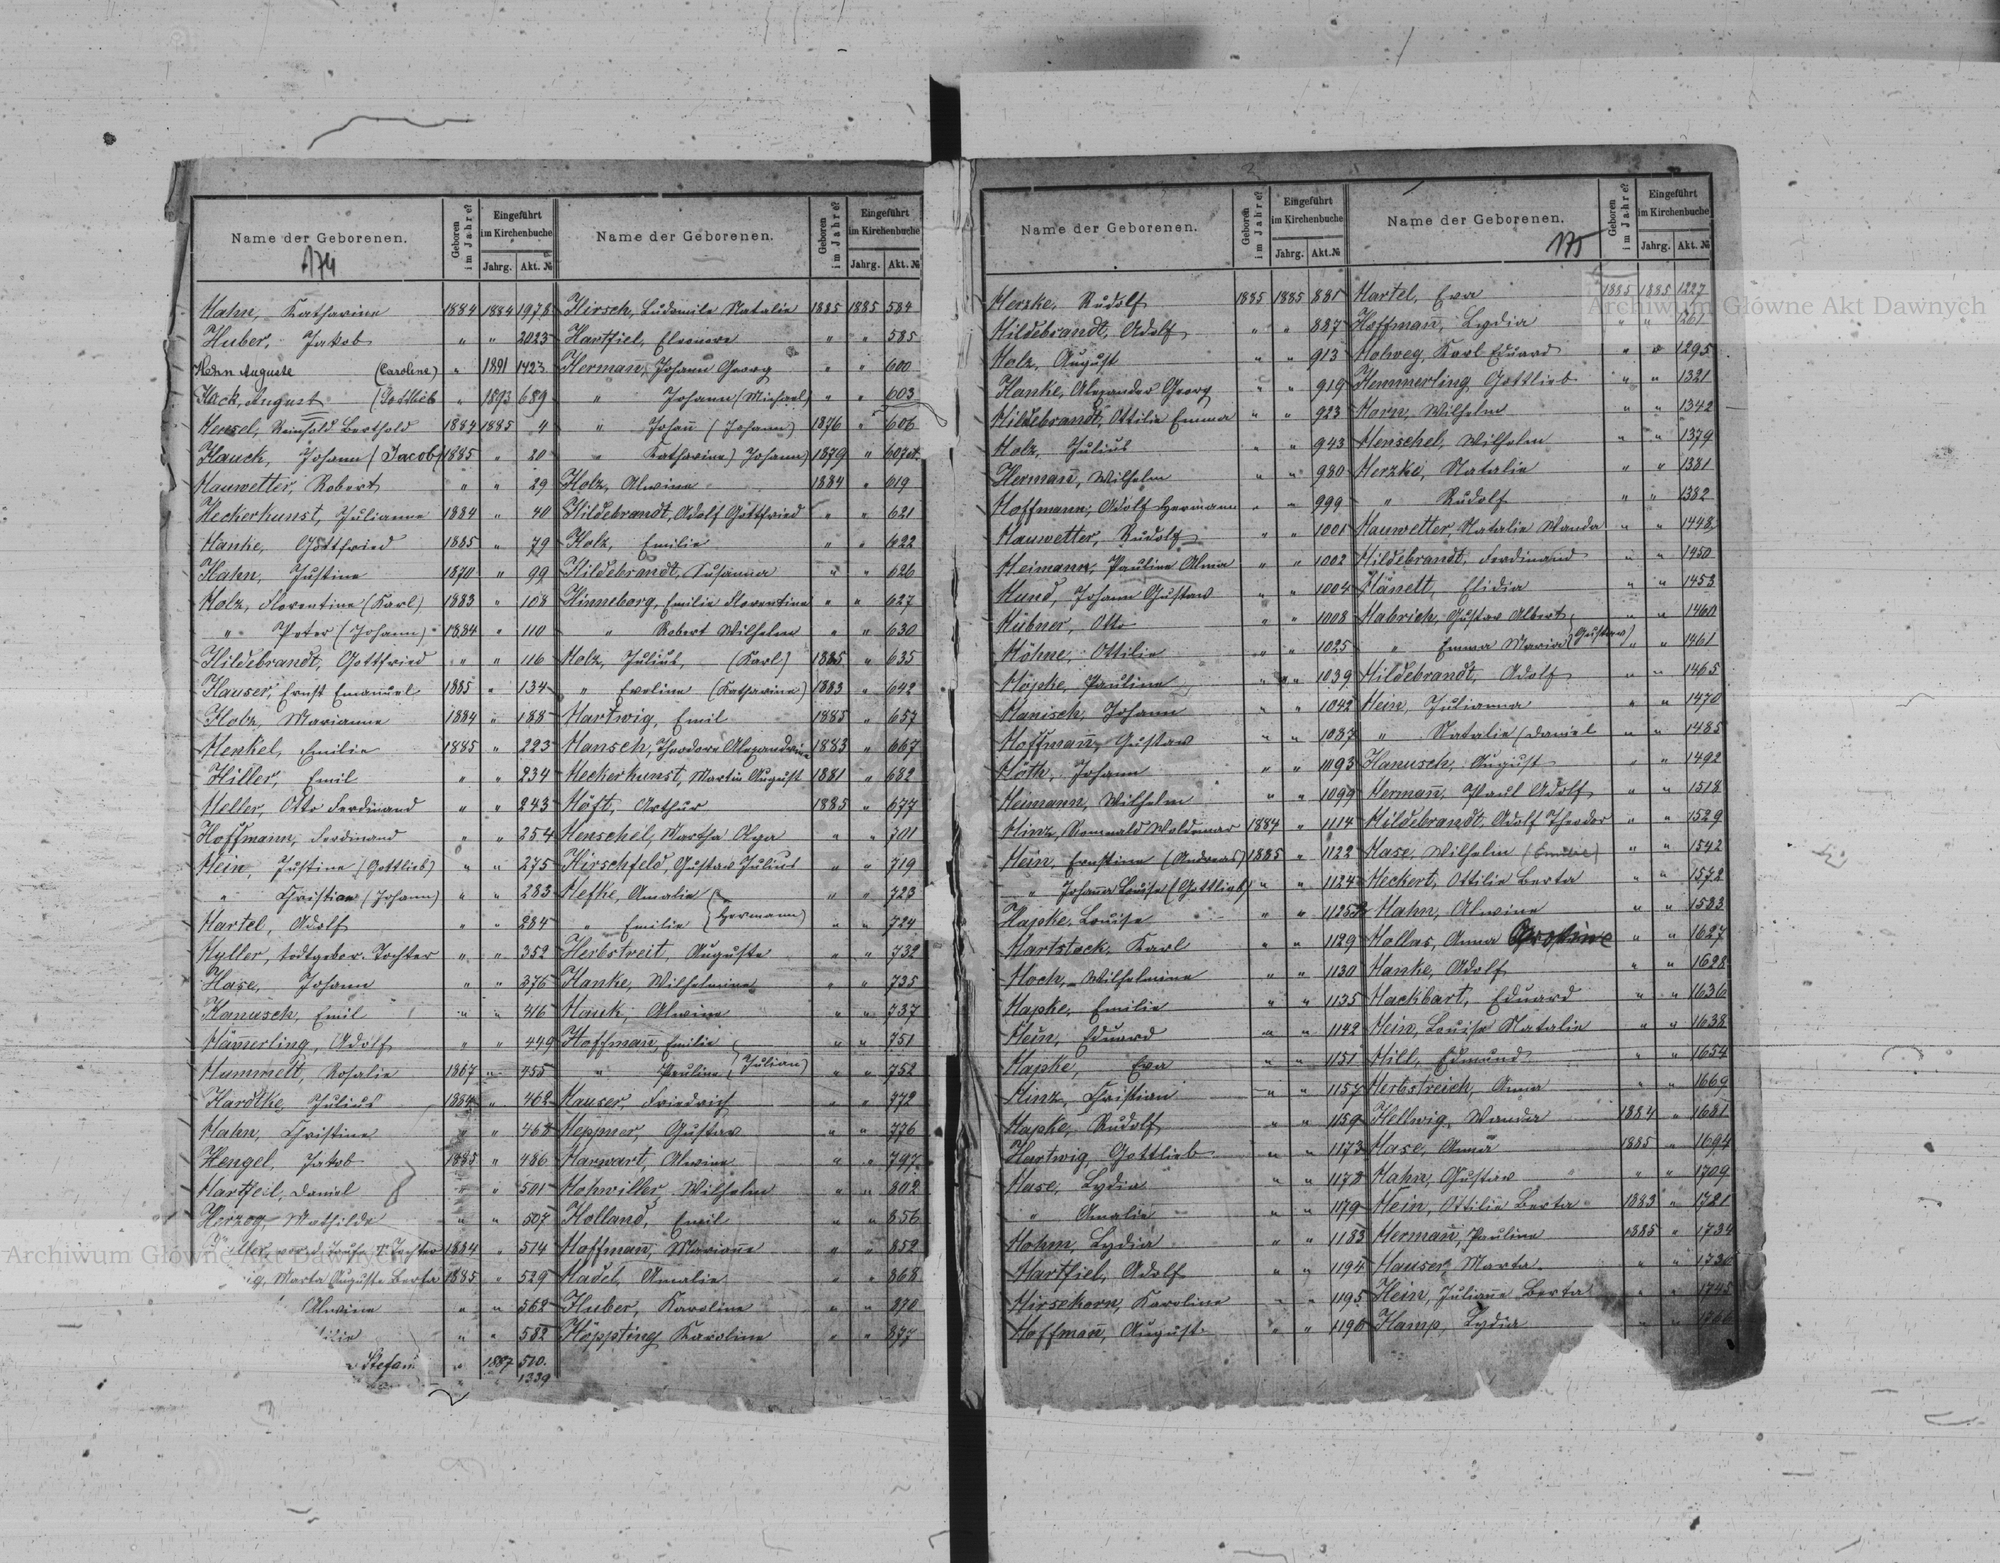 Name der Geborenen.
174
Geboren im Jahre?
Eingeführt im Kirchenbuche
Jahrg.
Akt. №
Hahn, Katharina 1884 1884 1978
Huber, Jakob " " 2023
Horn Auguste (Caroline) " 1891 1423
Hack, August (Gottlieb " 1893 689
Hensel, Reinhold Berthold 1884 1885 4
Hauck, Johann (Jacob) 1885 " 20
Hauwetter, Robert " " 29
Heckerkunst, Julianne 1884 " 40
Hanke, Gottfried 1885 " 79
Hahn, Justine 1870 " 99
Holz, Florentine (Karl) 1883 " 108
" Peter (Johann) 1884 " 110
Hildebrandt, Gottfried " " 116
Hauser, Ernst Emanuel 1885 " 134
Holz, Marianna 1884 " 188
Henkel, Emilie 1885 " 223
Hiller, Emil " " 234
Heller, Otto Ferdinand " " 243
Hoffmann, Ferdinand " " 254
Hein, Justine (Gottlieb) " " 275
" Christian (Johann) " " 283
Hartel, Adolf " " 284
Hyller, todtgebor. Tochter " " 352
Hase, Johann " " 376
Hanusch, Emil " " 416
Hämerling, Adolf " " 449
Hummelt, Rosalie 1867 " 455
Hardtke, Julius 1884 " 462
Hahn, Christine " " 468
Hengel, Jakob 1885 " 486
Hartfeil, Daniel " " 501
Herzog, Mathilde " " 507
Tochter 1884 " 514
Marta Auguste Berta 1885 " 529
Alwine " " 562
" " 582
Stefan " 1887 510.
" " 1339
Name der Geborenen.
Geboren im Jahre?
Eingeführt im Kirchenbuche
Jahrg.
Akt. №
Hirsch, Ludomila Natalie 1885 1885 584
Hartfiel, Eleonore " " 585
Hermañ, Johann Georg " " 600
" Johann (Michael) " " 603
" Johañ (Johann) 1876 " 606
" Katharina) Johann) 1879 " 607
Holz, Alwina 1884 " 619
Hildebrandt, Adolf Gottfried " " 621
Holz, Emilie " " 622
Hildebrandt, Susanna " " 626
Hinneborg, Emilie Florentine " " 627
" Robert Wilhelm " " 630
Holz, Julius, (Karl) 1885 " 635
" Eveline (Katharina) 1883 " 642
Hartwig, Emil 1885 " 657
Hansch, Theodore Alexandrine 1883 " 667
Heckerkunst, Martin August 1881 " 682
Höft, Arthur 1885 " 677
Henschel, Martha Olga " " 701
Hirschfeld, Gustav Julius " " 719
Hefke, Amalie " " 723
" Emilie (Hermann) " " 724
Herbstreit, Auguste " " 732
Hanke, Wilhelmine " " 735
Hauk, Alwine " " 737
Hoffmañ, Emilie " " 751
" Pauline (Julian) " " 752
Hauser, Friedrich " " 772
Heppner, Gustav " " 776
Harwart, Alwine " " 797
Hohwiller, Wilhelm " " 802
Holland, Emil " " 856
Hoffmañ, Mariañe " " 852
Hadel, Amalie " " 868
Huber, Karoline " " 870
Höpping Karoline " " 877
Name der Geborenen.
Geboren im Jahre?
Eingeführt im Kirchenbuche
Jahrg.
Akt. №
Herzke, Rudolf 1885 1885 881
Hildebrandt, Adolf " " 887
Holz, August " " 913
Hanke, Alexander Georg " " 919
Hildebrandt, Ottilie Emma " " 923
Holz, Julius " " 943
Hermañ, Wilhelm " " 980
Hoffmann, Adolf Hermann " " 999
Hauwetter, Rudolf " " 1001
Heimann, Pauline Alma " " 1002
Hund, Johann Gustav " " 1004
Hübner, Otto " " 1008
Höhne, Ottilie " " 1025
Höpke, Pauline " " 1039
Hanisch, Johann " " 1042
Hoffmañ, Gustav " " 1087
Höth, Johann " " 1093
Heimann, Wilhelm " " 1099
Hinz, Romuald Woldemar 1884 " 1114
Hein, Ernstine (Andreas) 1885 " 1122
" Johañna Louise (Gottlieb) " " 1124
Hapke, Louise " " 1125
Hartstock, Karl " " 1129
Hoch, Wilhelmine " " 1130
Hapke, Emilie " " 1135
Hein, Eduard " " 1142
Hapke, Eva " " 1151
Hinz, Christian " " 1157
Hapke, Rudolf " " 1159
Hartwig, Gottlieb " " 1173
Hase, Lydia " " 1178
" Amalie " " 1179
Hohm, Lydia " " 1183
Hartfiel, Adolf " " 1194
Hirsekorn, Karoline " " 1195
Hoffmañ, August " " 1196
Name der Geborenen.
175
Geboren im Jahre?
Eingeführt im Kirchenbuche
Jahrg.
Akt. №
Hartel, Eva 1885 1885 1227
Hoffmañ, Lydia " " 1261
Holweg, Karl Eduard " " 1295
Hemmerling Gottlieb " " 1321
Horn, Wilhelm " " 1342
Henschel, Wilhelm " " 1379
Herzke, Natalie " " 1381
" Rudolf " " 1382
Hauwetter, Natalie Wanda " " 1448
Hildebrandt, Ferdinand " " 1450
Hänelt, Elidia " " 1453
Habrich, Gustav Albert " " 1460
" Emma Maria (Gustav) " " 1461
Hildebrandt, Adolf " " 1465
Hein, Julianna " " 1470
" Natalie (Daniel " " 1485
Hanusch, August " " 1492
Hermañ, Paul Adolf " " 1518
Hildebrandt, Adolf Theodor " " 1529
Hase, Wilhelm (Emilie) " " 1542
Heckert, Ottilie Berta " " 1572
Hahn, Alwine " " 1583
Hollas, Anna " " 1627
Hanke, Adolf " " 1628
Hackbart, Eduard " " 1636
Hein, Louise Natalie " " 1638
Hill, Edmund " " 1654
Herbstreich, Anna " " 1669
Hellwig, Wanda 1884 " 1681
Hase, Anna 1885 " 1694
Hahn, Gustav " " 1709
Hein, Ottilie Berta 1883 " 1721
Hermañ, Pauline 1885 " 1734
Hauser, Marta " " 1736
Hein, Juliañe Berta " " 1745
Hamp, Lydia " "
Archiwum Główne Akt Dawnych
Archiwum Główne Akt Dawnych